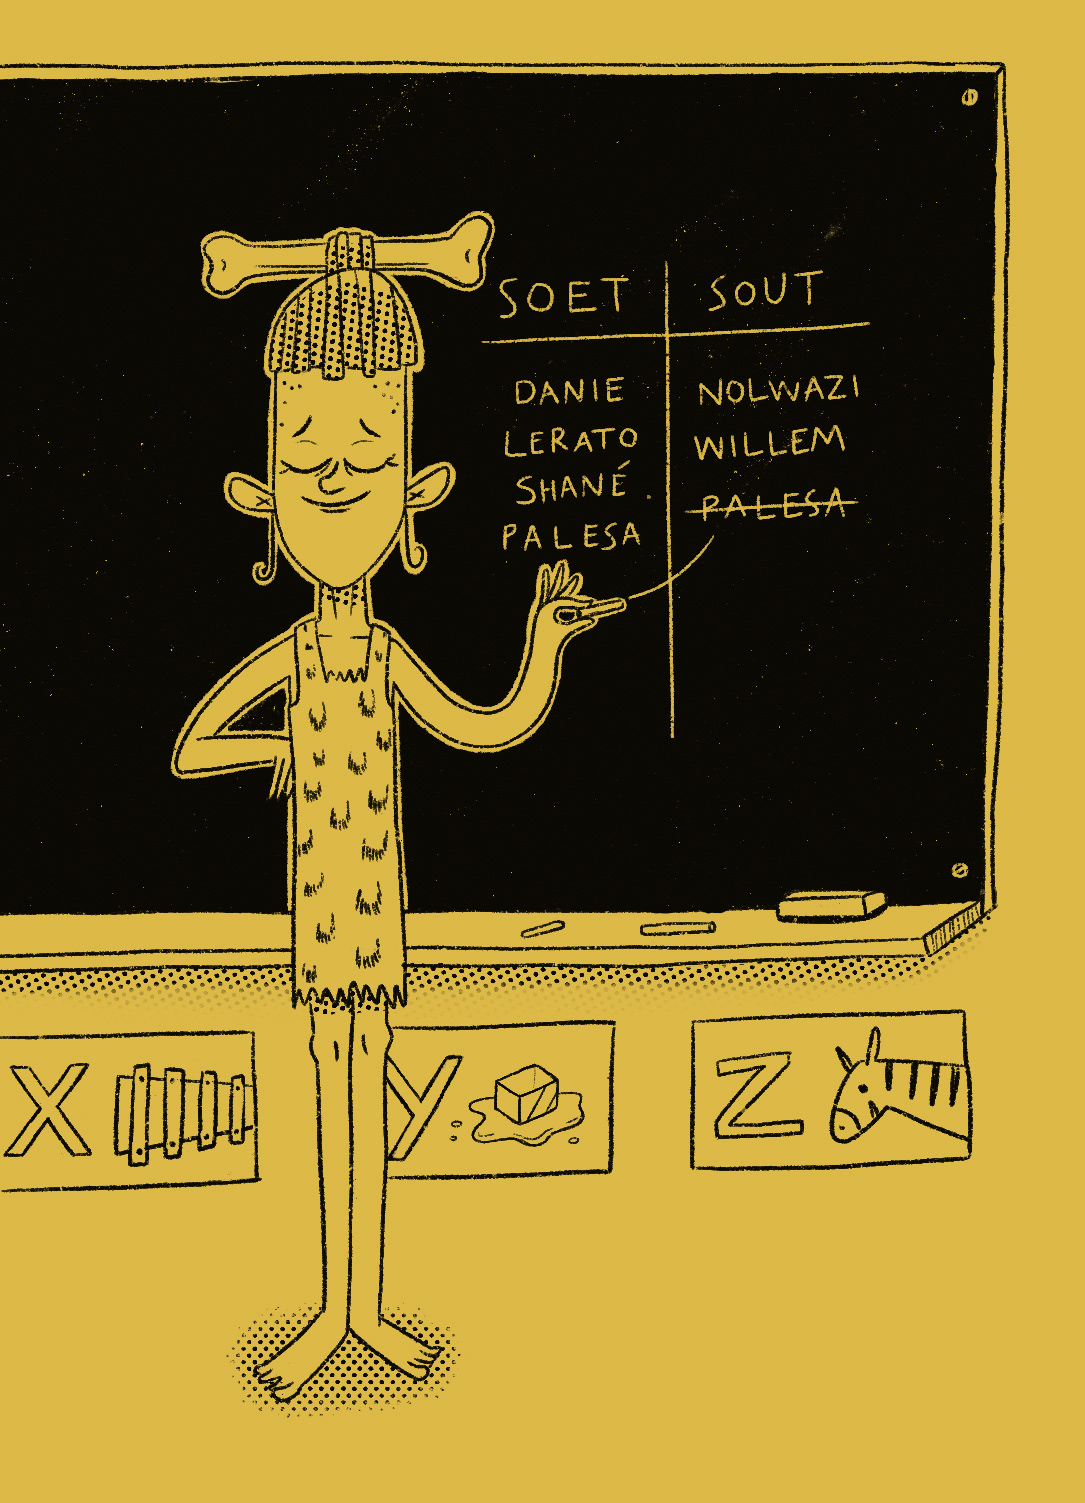 SOET SOUT
DANIE NOLWAZI
LERATO WILLEM
SHANÉ PALESA
PALESA
X Y Z